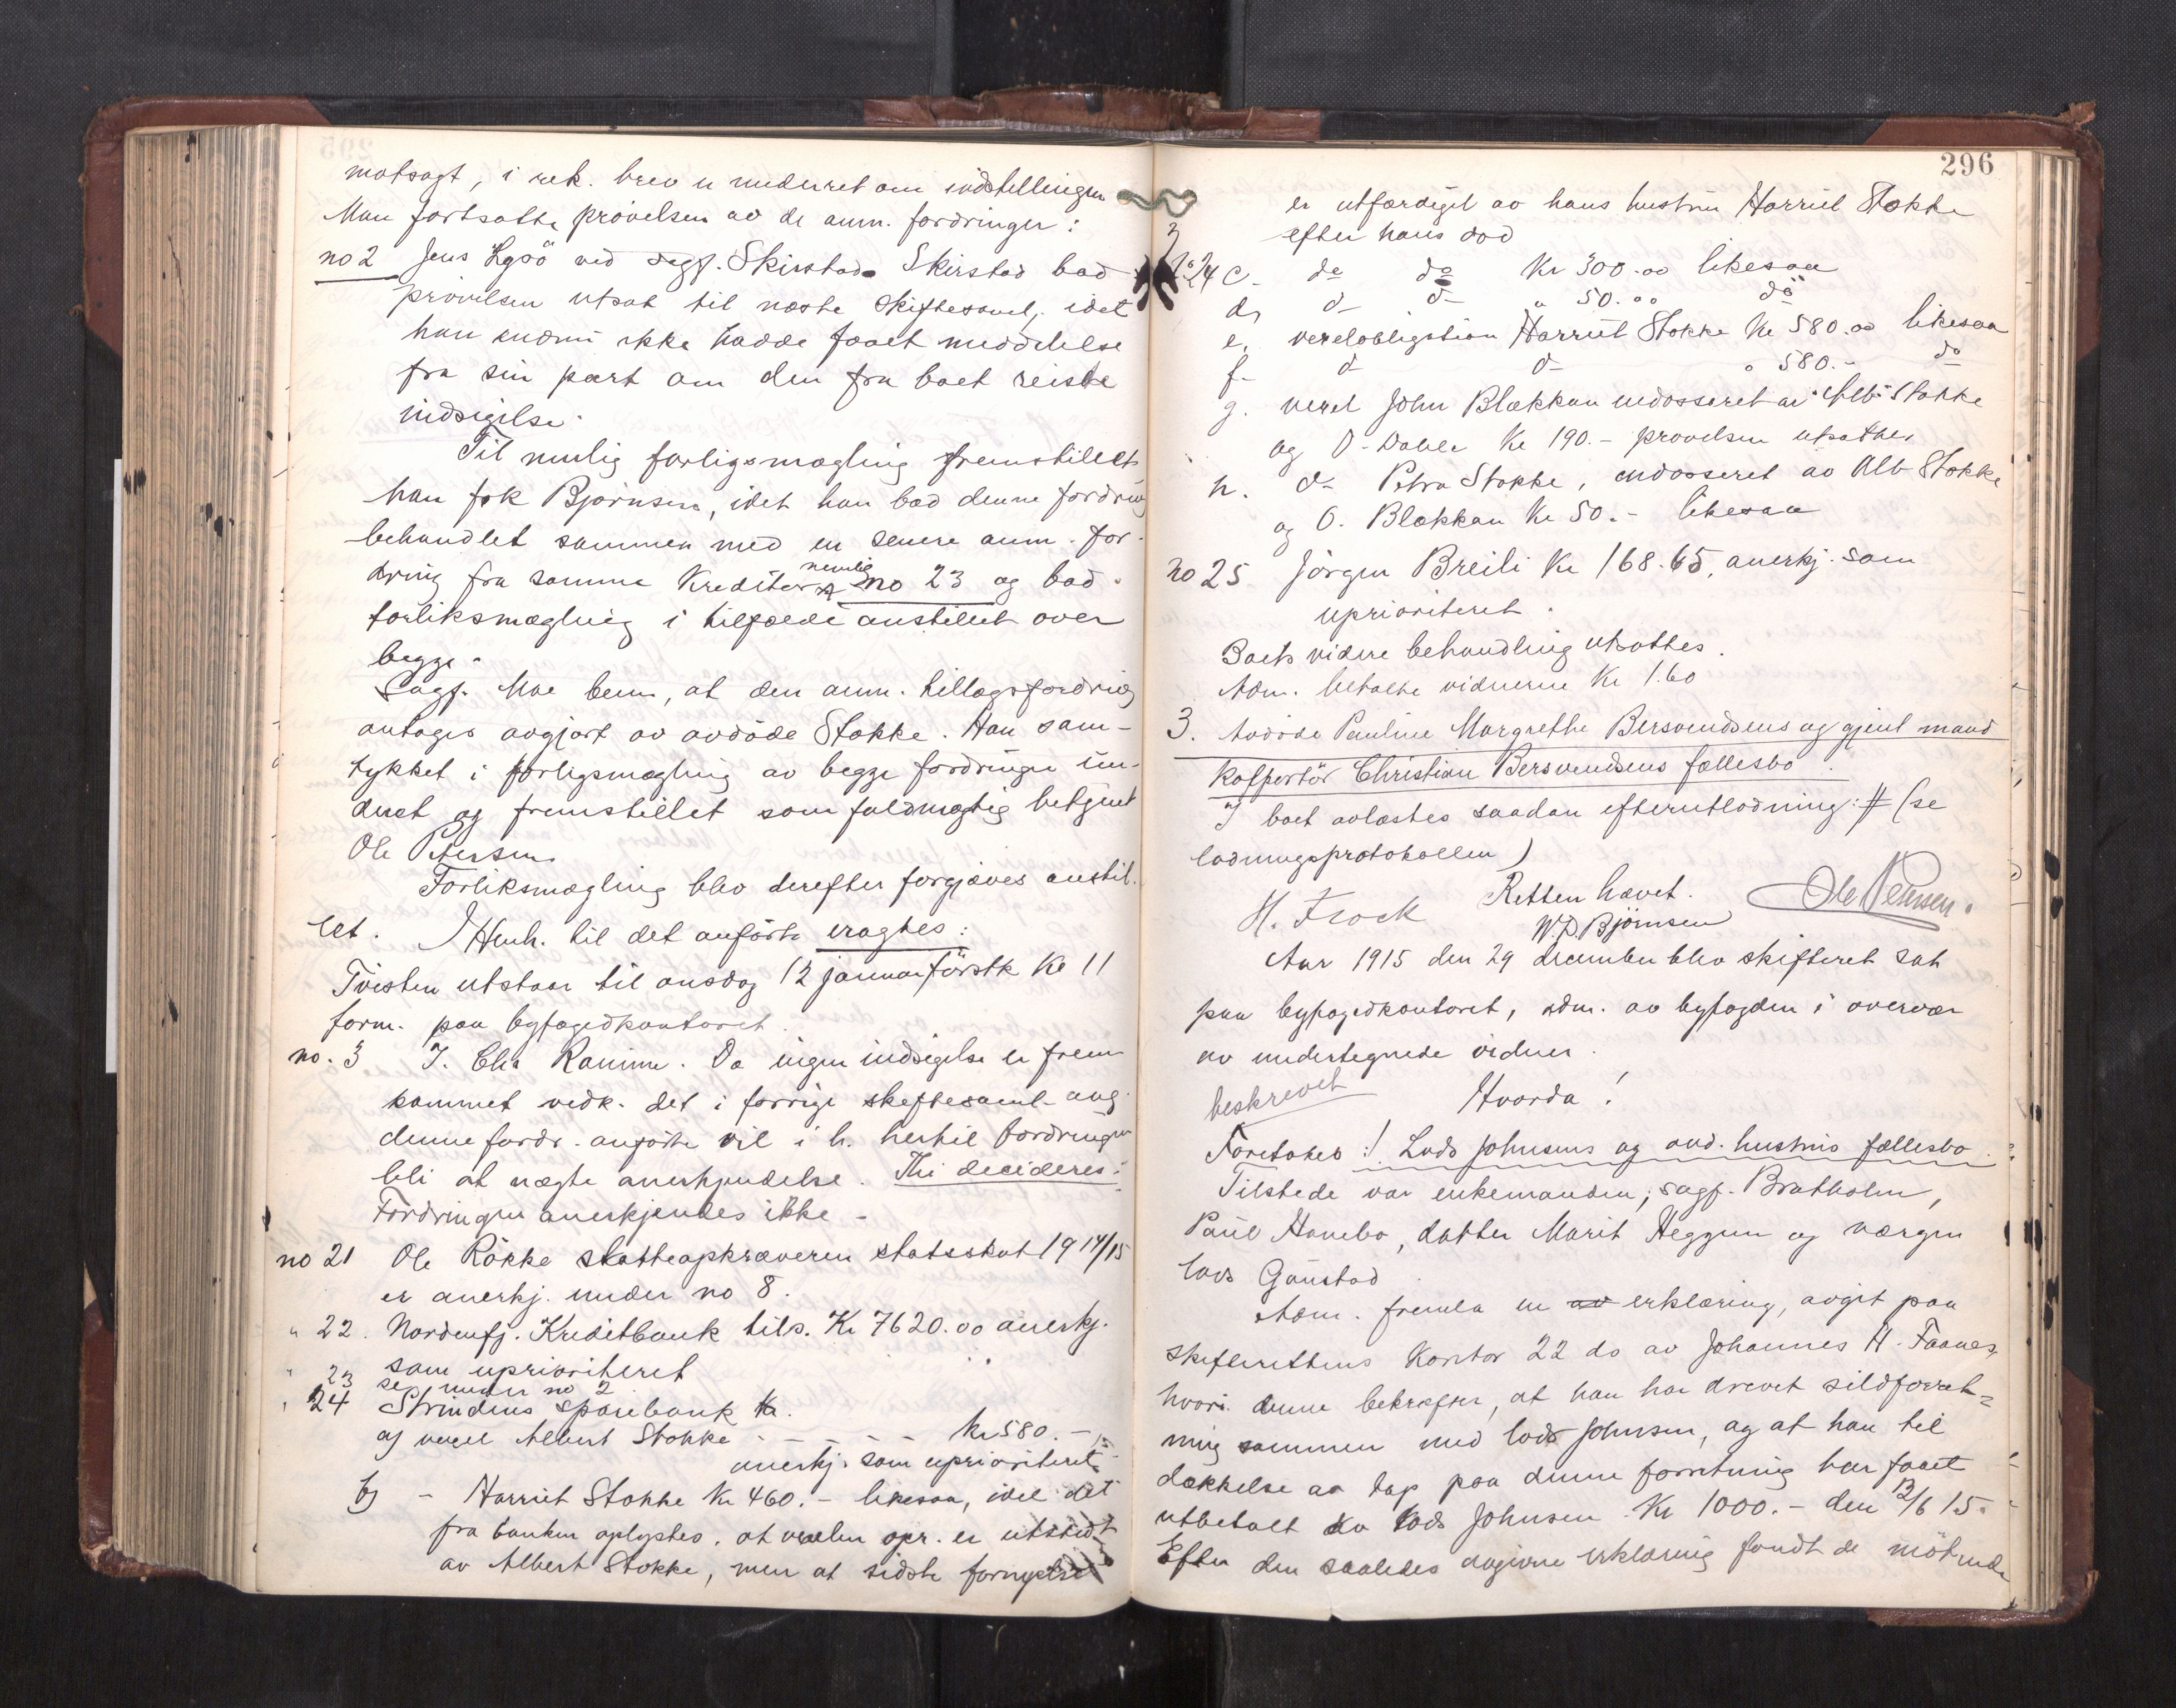 motsagt, i rek. brev er underret om indstillingen
Man fortsatte prøvelsen av de anm. fordringer:
no 2 Jens Hgsö ved sagf. Skirstad. Skirstad bad
prøvelsen utsat til næste skiftesaml, idet
han endnu ikke hadde faaet meddelelse
fra sin part om den fra boet reiste
indsigelse.
Til mulig forligsmægling fremstillet
han frk Bjørnsen, idet han bad denne fordring
behandlet sammen med en senere anm. for-
dring fra samme Kreditor nemlig no 23 og bad
forliksmægling i tilfælde anstillet over
begge.
Sagf. Moe bem, at den anm. tillægsfordring
antages avgjort av avdöde Stokke. Han sam-
tykket i forligsmægling av begge fordringer un-
deret og fremstillet som fuldmægtig betjent
Ole Petersen
Forliksmægling blev derefter forgjæves anstil-
let. I Henh. til det anførte eragtes:
Tvisten utstaar til onsdag 12 januar förstk Kl 11
form. paa byfogedkontoret.
no. 3 I. Chr Ramm. Da ingen indsigelse er frem-
kommet vedk. det i forrige skiftesaml. ang.
denne fordr. anførte vil i h. hertil fordringen
bli at nægte anerkjendelse. Thi decideres:
Fordringen anerkjendes ikke -
no 21 Ole Rökke skatteopkræveren statsskat 1914/15
er anerkj. under no 8.
" 22. Nordenfj. Kreditbank tils. Kr 7620.00 anerkj.
som uprioriteret
" 23 se under no 2
" 24 Strindens sparebank
a) vexel Albert Stokke - - - - Kr 580.-
anerkj. som uprioriteret
b) - Harriet Stokke Kr 460.- likesaa, idet det
fra banken oplystes, at vexelen opr. er utstedt
av Albert Stokke, men at sidste fornyelse
296
er utfærdiget av hans hustru Harriet Stokke
efter hans død
no 24 c. do do Kr 300.00 likesaa
d, d- d- " 50.00 do
e. vexelobligation Harriet Stokke Kr 580.00 likesaa
f- d d- " 580.- do
g. vexel John Blækkan endosseret av Alb. Stokke
og O. Dahle Kr 190.- prøvelsen utsattes
h. d- Petra Stokke, endosseret av Alb Stokke
og O. Blækkan Kr 50.- likesaa
no 25 Jörgen Breili Kr 168.65, anerkj. som
uprioriteret.
Boets videre behandling utsattes.
Adm. betalte vidnerne Kr 1.60
3. Avdöde Pauline Margrethe Bersvendsens og gjenl. mand
kolportör Christian Bersvendsens fællesbo.
I boet avlæstes saadan efterutlodning: # (se
lodningsprotokollen)
Retten hævet.
H. Frock W.D. Björnsen Ole Petersen.
Aar 1915 den 29 december blev skifteret sat
paa byfogedkontoret, adm. av byfogden i overvær
av undertegnede vidner.
beskrevet Hvorda!
Foretoges: 1. Lods Johnsens og avd. hustrus fællesbo.
Tilstede var enkemanden, sagf. Bratholm,
Paul Hanebo, datter Marit Heggem og værgen
lods Gaustad
Adm. fremla en erklæring, avgit paa
skifterettens kontor 22 ds av Johannes H. Faanes,
hvori denne bekræfter, at han har drevet sildforret-
ning sammen med lods Johnsen, og at han til
dækkelse av tap paa denne forretning har faaet
utbetalt av lods Johnsen Kr 1000.- den 12/6 15.
Efter den saaledes avgivne erklæring fandt de mötende